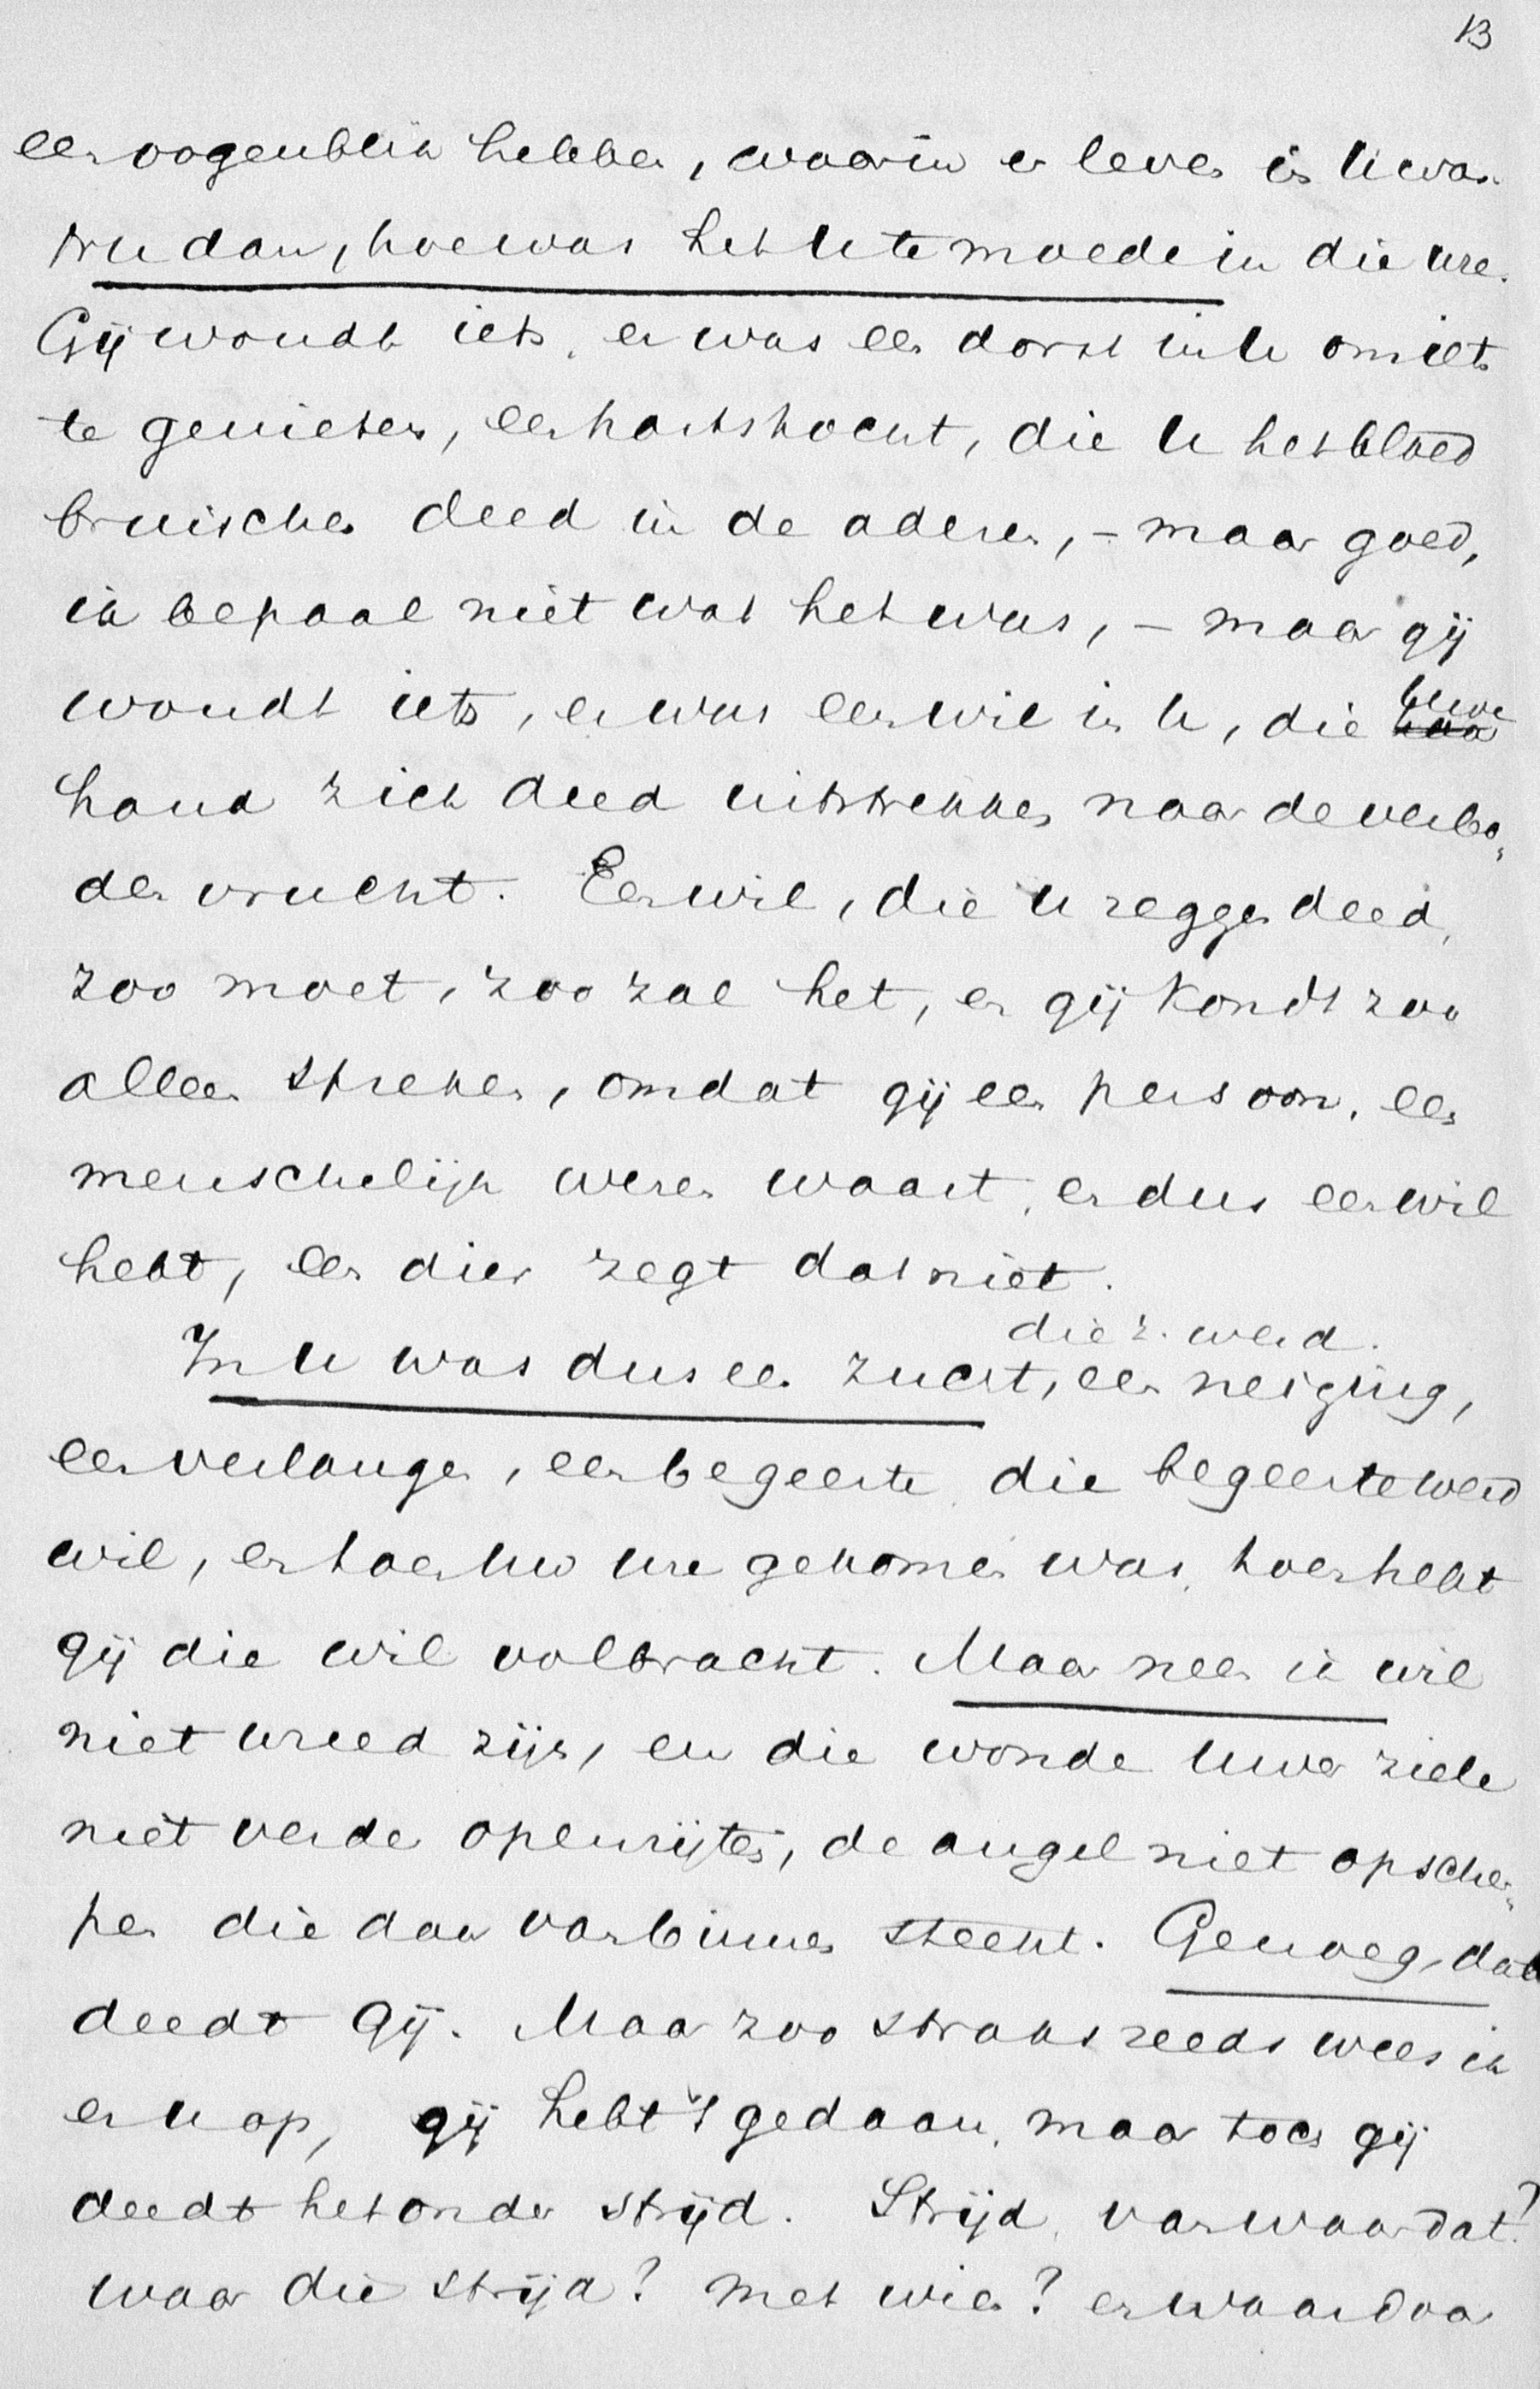 13
een oogenblik hebben, waarin er leven in U was.
Nu dan, hoe was het U te moede in die ure.
Gij woudt iets, er was een dorst in U om iets
te genieten, een hartstocht, die U het bloed
bruischen deed in de aderen, - maar goed,
ik bepaal niet wat het was, - maar gij
woudt iets, er was een wil in U, die uwe
hand zich deed uitstrekken naar de verbo-
den vrucht. Een wil, die U zeggen deed,
zoo moet, zoo zal het, en gij kondt zoo
alleen spreken, omdat gij een persoon, een
menschelijk wezen waart, en dus een wil
hebt, een dier zegt dat niet.
die z. werd.
In U was dus een zucht, een neiging,
een verlangen, een begeerte, die begeerte werd
wil, en toen uw ure gekomen was, toen hebt
gij die wil volbracht. Maar neen ik wil
niet wreed zijn, en die wonde uwer ziele
niet verder openrijten, de angel niet opscher-
pen die daar van binnen steekt. Genoeg, dat
deedt gij. Maar zoo straks reeds wees ik
er U op, gij hebt 't gedaan, maar toch gij
deedt het onder strijd. Strijd, van waar dat?
waar die strijd? met wien? en waardoor